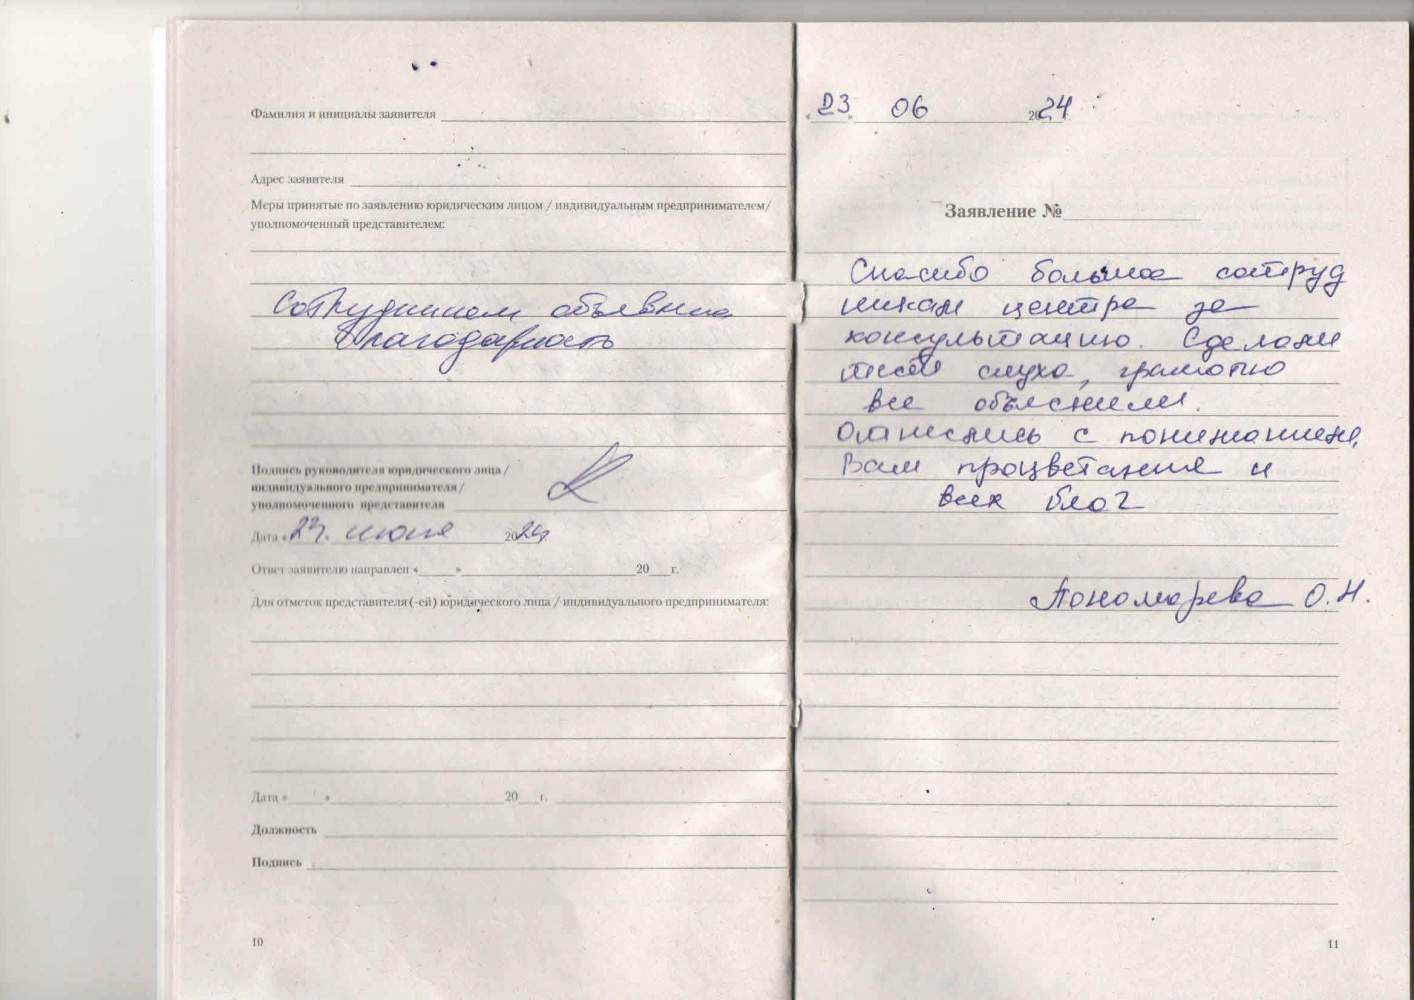 Фамилия и инициалы заявителя
Адрес заявителя
Меры принятые по заявлению юридическим лицом / индивидуальным предпринимателем/
уполномоченный представителем:
Сотрудникам объявлена
благодарность
Подпись руководителя юридического лица /
индивидуального предпринимателя /
уполномоченного представителя
Дата « 23 » июня 2024г.
Ответ заявителю направлен «____»____20__г.
Для отметок представителя(-ей) юридического лица / индивидуального предпринимателя:
Дата «____»____20__г.
Должность
Подпись
10
«23» 06 2024 г.
Заявление №
Спасибо большое сотруд
никам центра за
консультацию. Сделали
тест слуха, грамотно
все объяснили.
Отнеслись с пониманием.
Вам процветания и
всех благ
Пономарева О.Н.
11